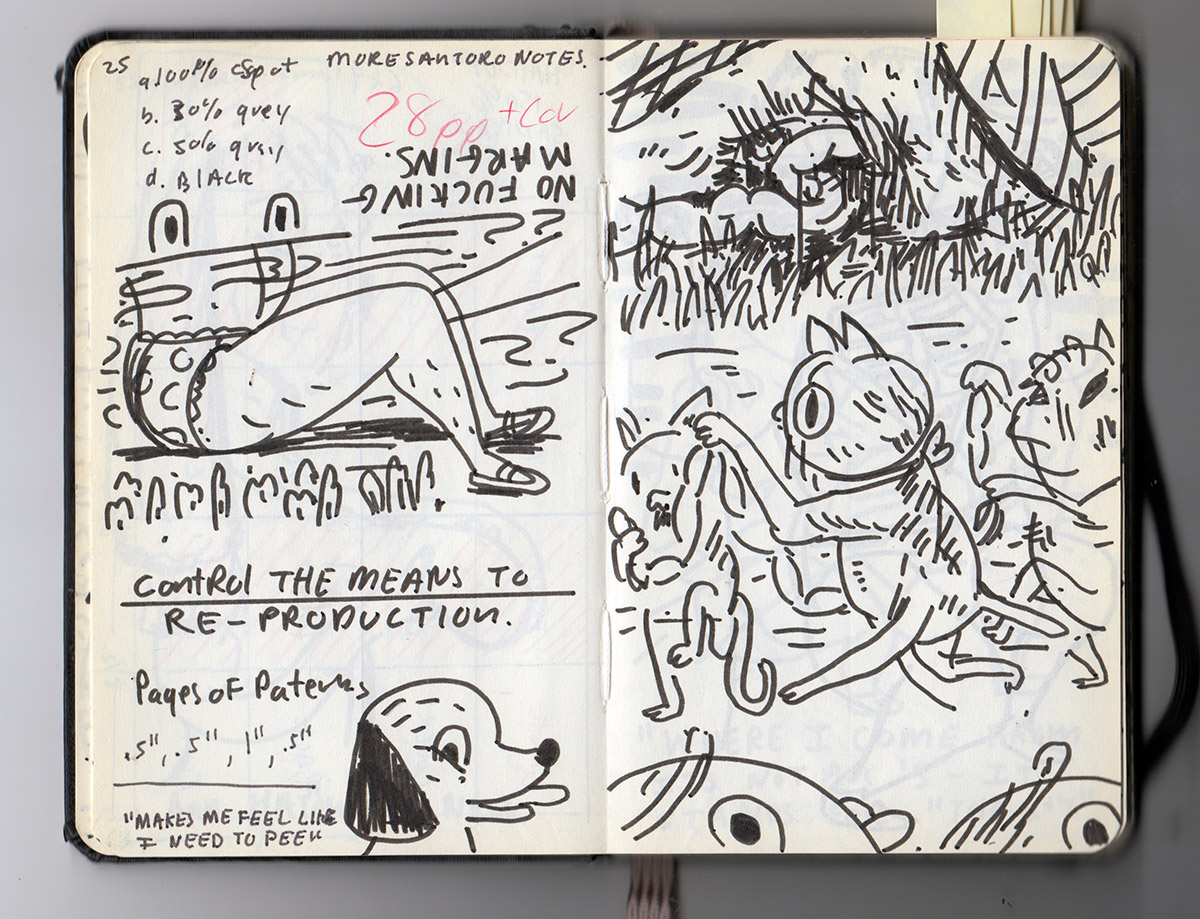 25
MORE SANTORO NOTES.
a. 100% spot
b. 30% grey
c. 50% gray
d. BLACK
28pp + Cov
NO FUCKING
MARGINS.
CONTROL THE MEANS TO
RE-PRODUCTION.
Pages of Paterns
.5", .5", 1", .5"
"MAKES ME FEEL LIKE
I NEED TO PEE"